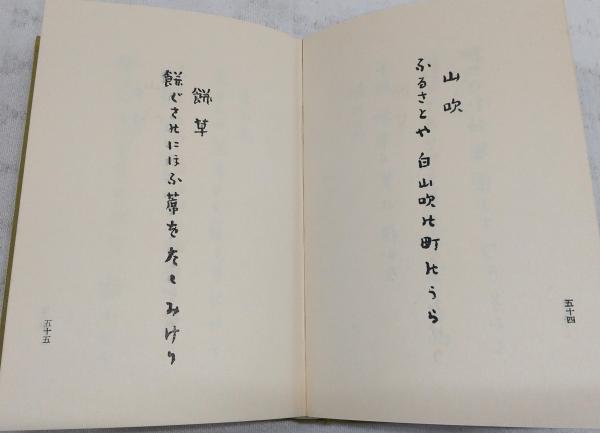 山吹
ふるさとや 白山吹の町のうら
五十四
餅草
餅ぐさのにほふ蓆をたゝみけり
五十五